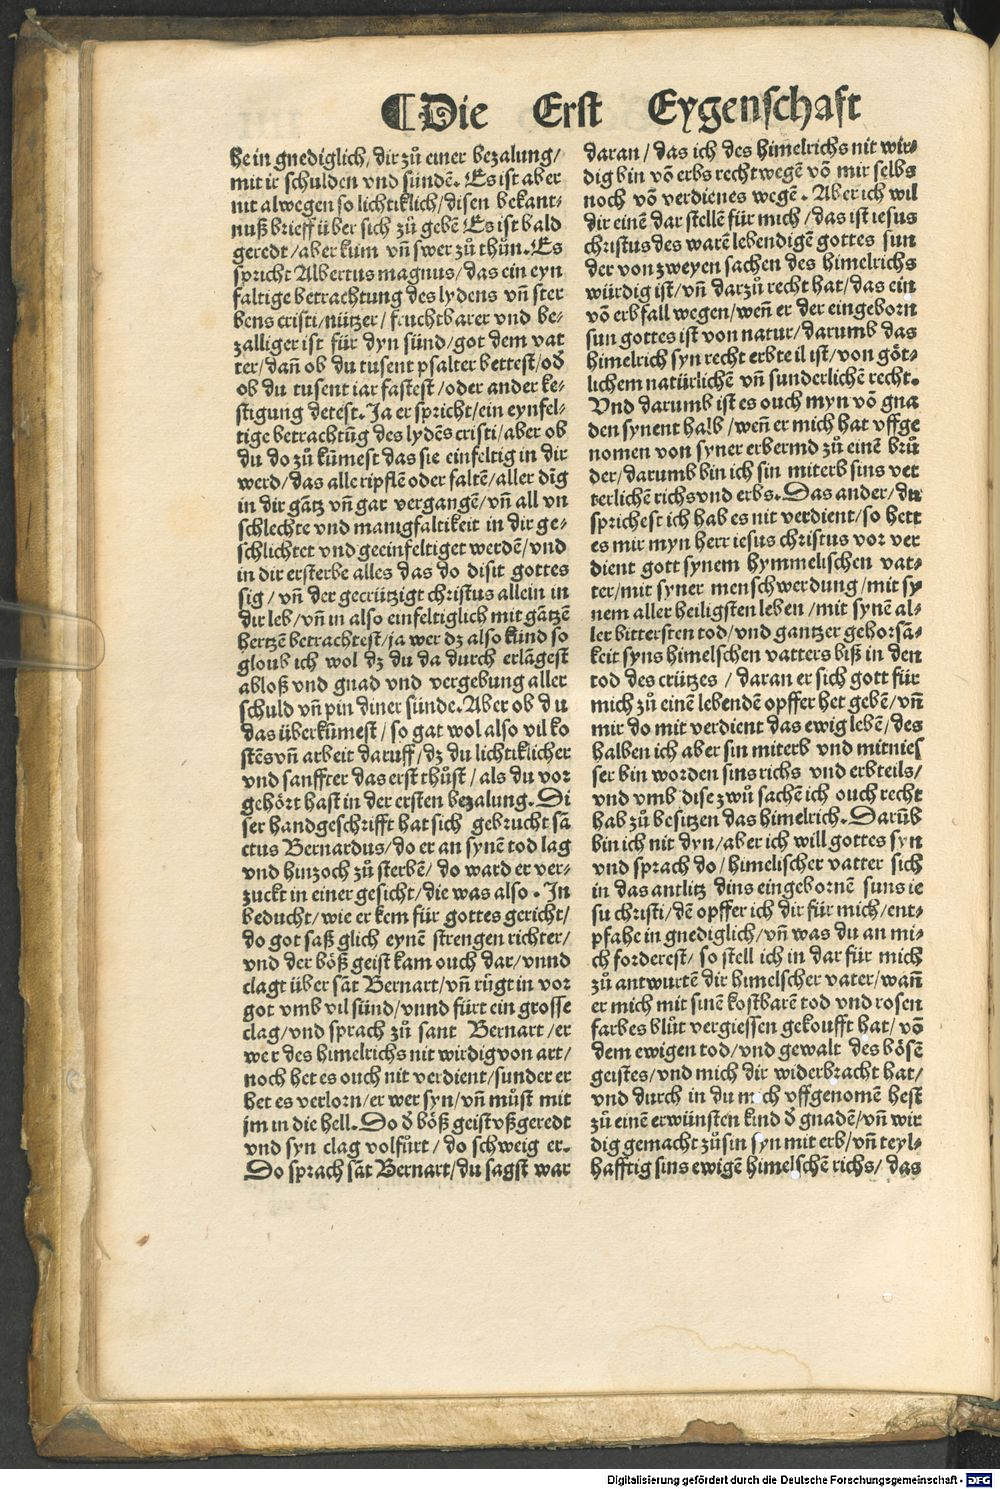 ¶Die Erst Eygenschaft
he in gnediglich, dir zů einer bezalung/
mit ir schulden vnd sündē. Es ist aber
nit alwegen so lichtiklich/disen bekant⸗
nuß brieff über sich zů gebē Es ist bald
geredt/aber kum vñ swer zů thůn. Es
spricht Albertus magnus/das ein eyn
faltige betrachtung des lydens vñ ster
bens cristi/nützer/fruchtbarer vnd be⸗
zalliger ist für dyn sünd/got dem vat
ter/dañ ob du tusent psalter bettest/oð
ob du tusent iar fastest/oder ander ke⸗
stigung detest. Ja er spricht/ein eynfel⸗
tige betrachtūg des lydēs cristi/aber ob
du do zů kümest das sie einfeltig in dir
werd/das alle ripflē oder faltē/aller dīg
in dir gātz vñ gar vergangē/vñ all vn
schlechte vnd manigfaltikeit in dir ge⸗
schlichtet vnd geeinfeltiget werdē/vnd
in dir ersterbe alles das do disit gottes
sig/vñ der gecrützigt christus allein in
dir leb/vñ in also einfeltiglich mit gātzē
hertzē betrachtest/ja wer dz also künd so
gloub ich wol dz du da durch erlāgest
abloß vnd gnad vnd vergebung aller
schuld vñ pin diner sünde. Aber ob du
das überkümest/so gat wol also vil ko
stēs vñ arbeit daruff/dz du lichtiklicher
vnd sanffter das erst thůst/als du vor
gehört hast in der ersten bezalung. Di
ser handgeschrifft hat sich gebrucht sā
ctus Bernardus/do er an synē tod lag
vnd hinzoch zů sterbē/do ward er ver⸗
zuckt in einer gesicht/die was also. In
beducht/wie er kem für gottes gericht/
do got saß glich eynē strengen richter/
vnd der böß geist kam ouch dar/vnnd
clagt über sāt Bernart/vñ rügt in vor
got vmb vil sünd/vnnd fürt ein grosse
clag/vnd sprach zů sant Bernart/er
wer des himelrichs nit wirdig von art/
noch het es ouch nit verdient/sunder er
het es verlorn/er wer syn/vñ můst mit
jm in die hell. Do ð böß geist vßgeredt
vnd syn clag volfůrt/do schweig er.
Do sprach sāt Bernart/du sagst war
daran/das ich des himelrichs nit wir⸗
dig bin vō erbs recht wegē vō mir selbs
noch vō verdienes wegē. Aber ich wil
dir einē dar stellē für mich/das ist iesus
christus des warē lebendigē gottes sun
der von zweyen sachen des himelrichs
würdig ist/vñ darzů recht hat/das ein
vō erbfall wegen/weñ er der eingeborn
sun gottes ist von natur/darumb das
himelrich syn recht erbteil ist/von göt⸗
lichem natürlichē vñ sunderlichē recht.
Vnd darumb ist es ouch myn vō gna
den synent halb/weñ er mich hat vffge
nomen von syner erbermd zů einē brů
der/darumb bin ich sin miterb sins vet
terlichē richs vnd erbs. Das ander/du
sprichest ich hab es nit verdient/so hett
es mir myn herr iesus christus vor ver
dient gott synem hymmelischen vat⸗
ter/mit syner menschwerdung/mit sy⸗
nem aller heiligsten leben/mit synē al⸗
ler bittersten tod/vnd gantzer gehorsā⸗
keit syns himelschen vatters biß in den
tod des crützes/daran er sich gott für
mich zů einē lebendē opffer het gebē/vñ
mir do mit verdient das ewig lebē/des
halben ich aber sin miterb vnd mitnies
ser bin worden sins richs vnd erbteils/
vnd vmb dise zwů sachē ich ouch recht
hab zů besitzen das himelrich. Darūb
bin ich nit dyn/aber ich will gottes syn
vnd sprach do/himelischer vatter sich
in das antlitz dins eingebornē suns ie
su christi/dē opffer ich dir für mich/ent⸗
pfahe in gnediglich/vñ was du an mi⸗
ch forderest/so stell ich in dar für mich
zů antwurtē dir himelscher vater/wañ
er mich mit sinē kostbarē tod vnd rosen
farbes blůt vergiessen gekoufft hat/vō
dem ewigen tod/vnd gewalt des bösē
geistes/vnd mich dir widerbracht hat/
vnd durch in du mich vffgenomē hest
zů einē erwünsten kind ð gnadē/vñ wir
dig gemacht zů sin syn mit erb/vñ teyl⸗
hafftig sins ewigē himelschē richs/das
Digitalisierung gefördert durch die Deutsche Forschungsgemeinschaft - DFG